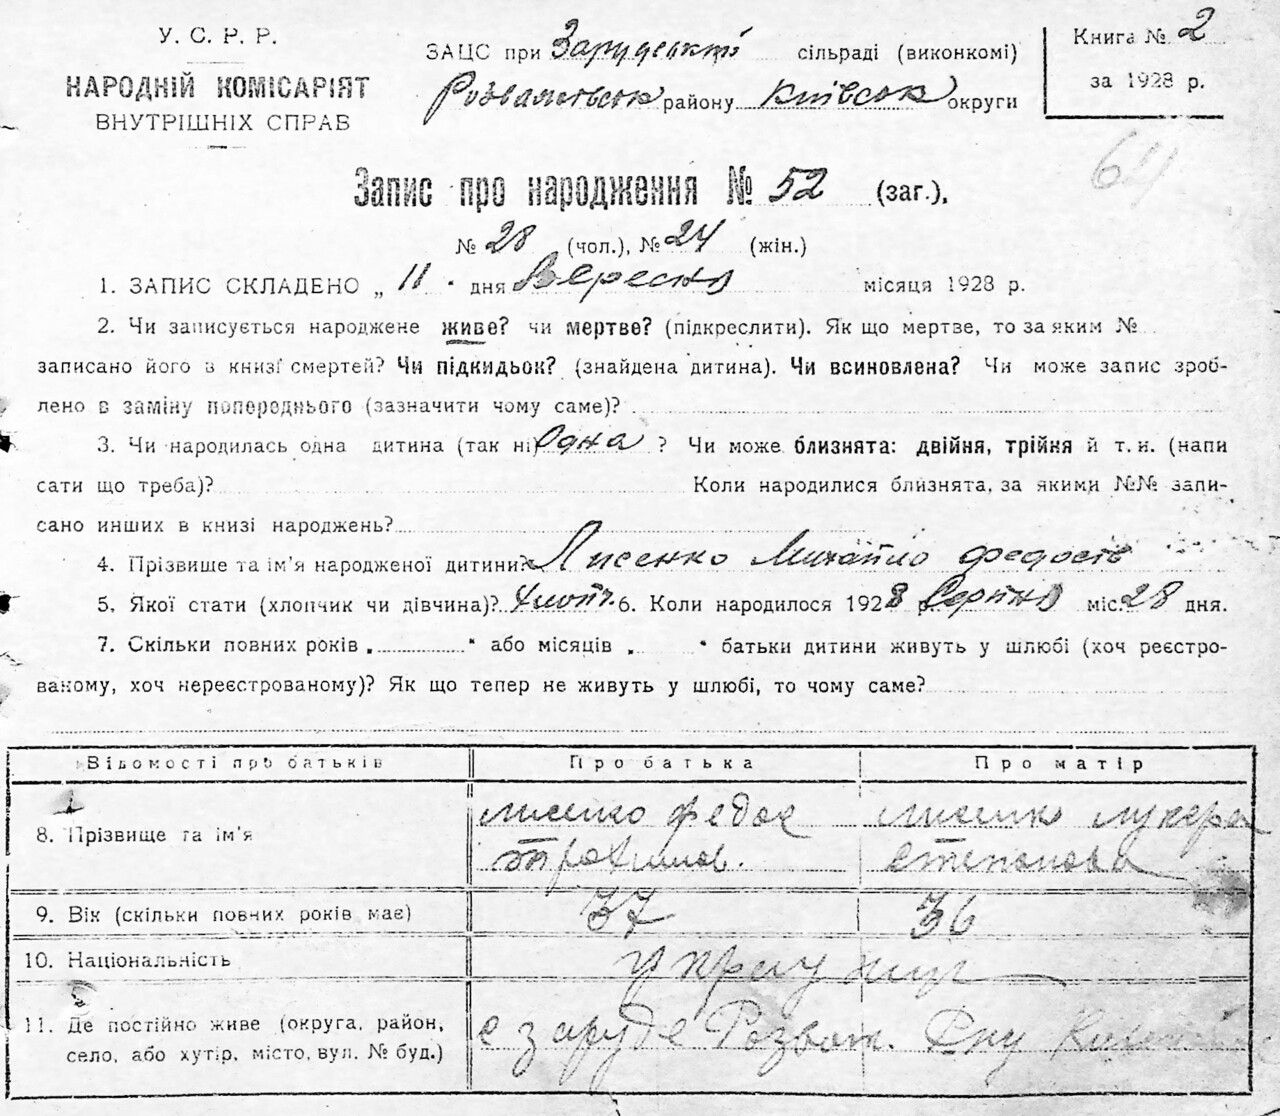 У. С. Р. Р.
НАРОДНІЙ КОМІСАРІЯТ
ВНУТРІШНІХ СПРАВ
ЗАЦС при Зарудській сільраді (виконкомі)
Розважівськ району Київськ округи
Книга № 2
за 1928 р.
64
Запис про народження № 52 (заг.),
№ 28 (чол.), № 24 (жін.)
1. ЗАПИС СКЛАДЕНО „ 11 " дня Вересня місяця 1928 р.
2. Чи записується народжене живе? чи мертве? (підкреслити). Як що мертве, то за яким №
записано його в книзі смертей? Чи підкидьок? (знайдена дитина). Чи всиновлена? Чи може запис зроб-
лено в заміну попереднього (зазначити чому саме)?
3. Чи народилась одна дитина (так ні) Одна ? Чи може близнята: двійня, трійня й т. и. (напи
сати що треба)? Коли народилися близнята, за якими №№ запи-
сано инших в книзі народжень?
4. Прізвище та ім'я народженої дитини Лисенко Михайло Федосів
5. Якої стати (хлопчик чи дівчина)? Хлопч. 6. Коли народилося 1928 р Серпня міс. 28 дня.
7. Скільки повних років „ " або місяців „ " батьки дитини живуть у шлюбі (хоч реєстро-
ваному, хоч нереєстрованому)? Як що тепер не живуть у шлюбі, то чому саме?
Відомості про батьків Про батька Про матір
8. Прізвище та ім'я лисенко федос трохимов. лисенк лукера степанова
9. Вік (скільки повних років має) 37 36
10. Національність
11. Де постійно живе (округа, район, село, або хутір, місто, вул. № буд.) с заруде Розваж. Рну